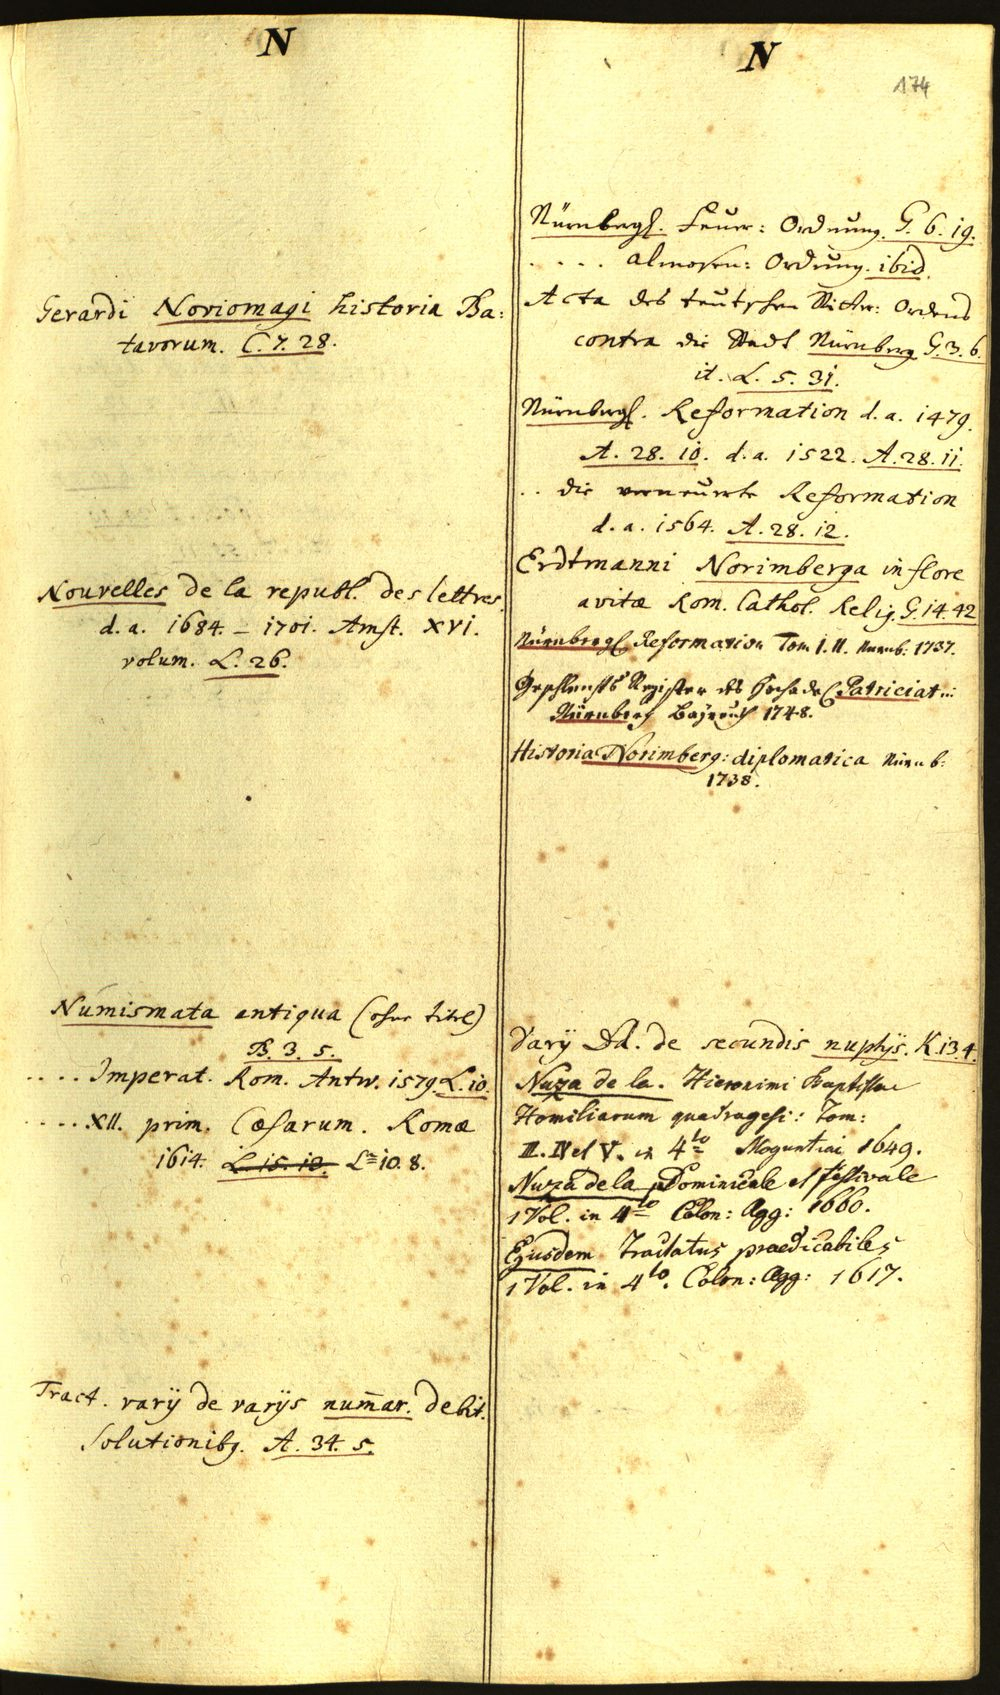 N
Gerardi Noviomagi historia Ba:
tavorum. C. 7. 28.
Nouvelles de la republ. des lettres.
d. a. 1684. – 1701. Amst. XVI.
volum. L. 26.
Numismata antiqua (ohne titel)
B. 3. 5.
.... Imperat. Rom. Antw. 1579 L. 10.
.... XII. prim. Cæsarum. Romæ
1614. L. 15. 10. L= 10. 8.
Tract. varij de varijs num̄ar. debit.
Solutionibq. A. 34. 5.
N
174
Nürnbergs. Feuer: Ordnung. G. 6. 19.
.... Almosen: Ordnung. ibid.
Acta des teutschen Ritter: Ordens
contra die Stadt Nürnberg G. 3. 6.
it. L. 5. 31.
Nürnbergs. Reformation d. a. 1479.
A. 28. 10. d. a. 1522. A. 28. 11.
.. die verneurte Reformation
d. a. 1564. A. 28. 12.
Erdtmanni Norimberga in flore
avitæ Rom. Cathol. Relig. G. 14. 42
Nürnbergl Reformation Tom I. II. Nurnb: 1737.
Geschlechts Register des Patriciat..:
Nürnberg Bayreuth 1748.
Historia Norimberg: diplomatica Nürnb:
1738.
Varij Dd. de secundis nuptijs. K. 13. 4.
Nuza de la. Hieronimi Baptistae
Homiliarum quadragesi: Tom:
III. IV et V. in 4to Moguntiai 1649.
Nuza de la Dominicale et festivale
1 Vol. in 4to Colon: Agg: 1660.
Ejusdem Tractatus praedicabiles
1 Vol. in 4to. Colon: Agg: 1617.